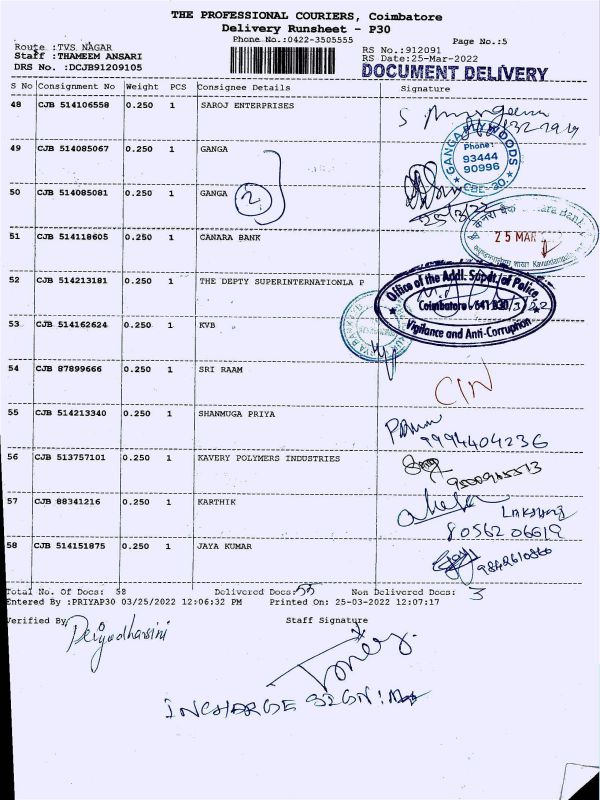 THE PROFESSIONAL COURIERS, Coimbatore
Delivery Runsheet - P30
Phone No.:0422-3505555
Page No.:5
Route :TVS NAGAR
Staff :THAMEEM ANSARI
DRS No. :DCJB91209105
RS No.:912091
RS Date:25-Mar-2022
DOCUMENT DELIVERY
S No Consignment No Weight PCS Consignee Details Signature
48 CJB 514106558 0.250 1 SAROJ ENTERPRISES
49 CJB 514085067 0.250 1 GANGA
GANGA PLYWOODS
Phone:
93444
90996
CBE-30.
50 CJB 514085081 0.250 1 GANGA 2
25/3/22
51 CJB 514118605 0.250 1 CANARA BANK
25 MAR
52 CJB 514213181 0.250 1 THE DEPTY SUPERINTERNATIONLA P
Office of the Addl. Supdt. of Police
Coimbatore - 641 030
Vigilance and Anti-Corruption
53 CJB 514162624 0.250 1 KVB
54 CJB 87899666 0.250 1 SRI RAAM
55 CJB 514213340 0.250 1 SHANMUGA PRIYA
9994404236
56 CJB 513757101 0.250 1 KAVERY POLYMERS INDUSTRIES
57 CJB 88341216 0.250 1 KARTHIK
8056206619
58 CJB 514151875 0.250 1 JAYA KUMAR
9842610860
Total No. Of Docs: 58 Delivered Docs: 55 Non Delivered Docs: 3
Entered By :PRIYAP30 03/25/2022 12:06:32 PM Printed On: 25-03-2022 12:07:17
Verified By Priyadharsini Staff Signature
INCHARGE SIGN: